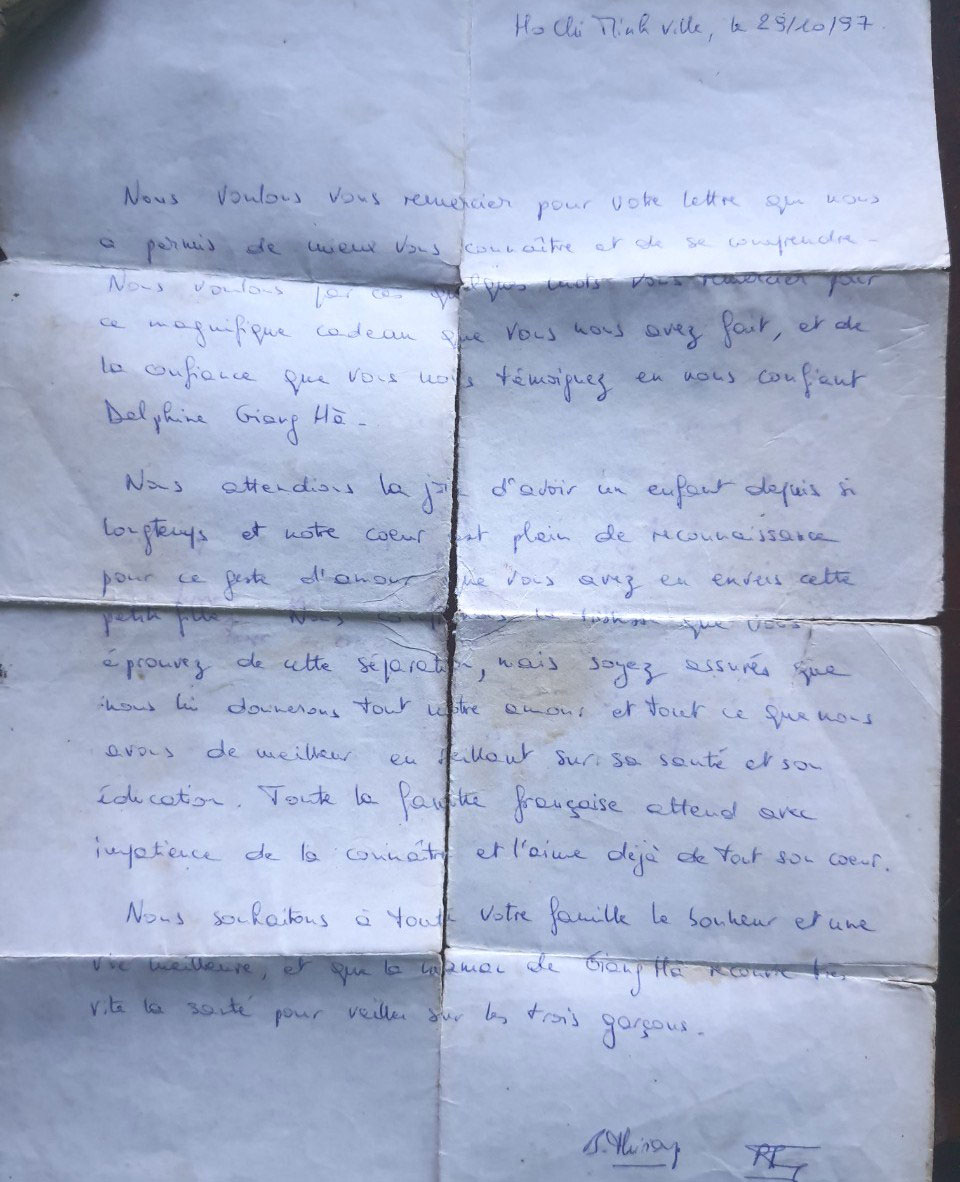 Ho Chi Minh ville, le 29/10/97.
Nous voulons vous remercier pour votre lettre qui nous
a permis de mieux vous connaître et de se comprendre.
Nous voulons par ces quelques mots vous remercier pour
ce magnifique cadeau que vous nous avez fait, et de
la confiance que vous nous témoignez en nous confiant
Delphine Giang Hà.
Nous attendions la joie d'avoir un enfant depuis si
longtemps et notre coeur est plein de reconnaissance
pour ce geste d'amour que vous avez eu envers cette
petite fille. Nous comprenons la tristesse que vous
éprouvez de cette séparation, mais soyez assurés que
nous lui donnerons tout notre amour et tout ce que nous
avons de meilleur en veillant sur sa santé et son
éducation. Toute la famille française attend avec
impatience de la connaître et l'aime déjà de tout son coeur.
Nous souhaitons à toute votre famille le bonheur et une
vie meilleure, et que la maman de Giang Hà recouvre très
vite la santé pour veiller sur les trois garçons.